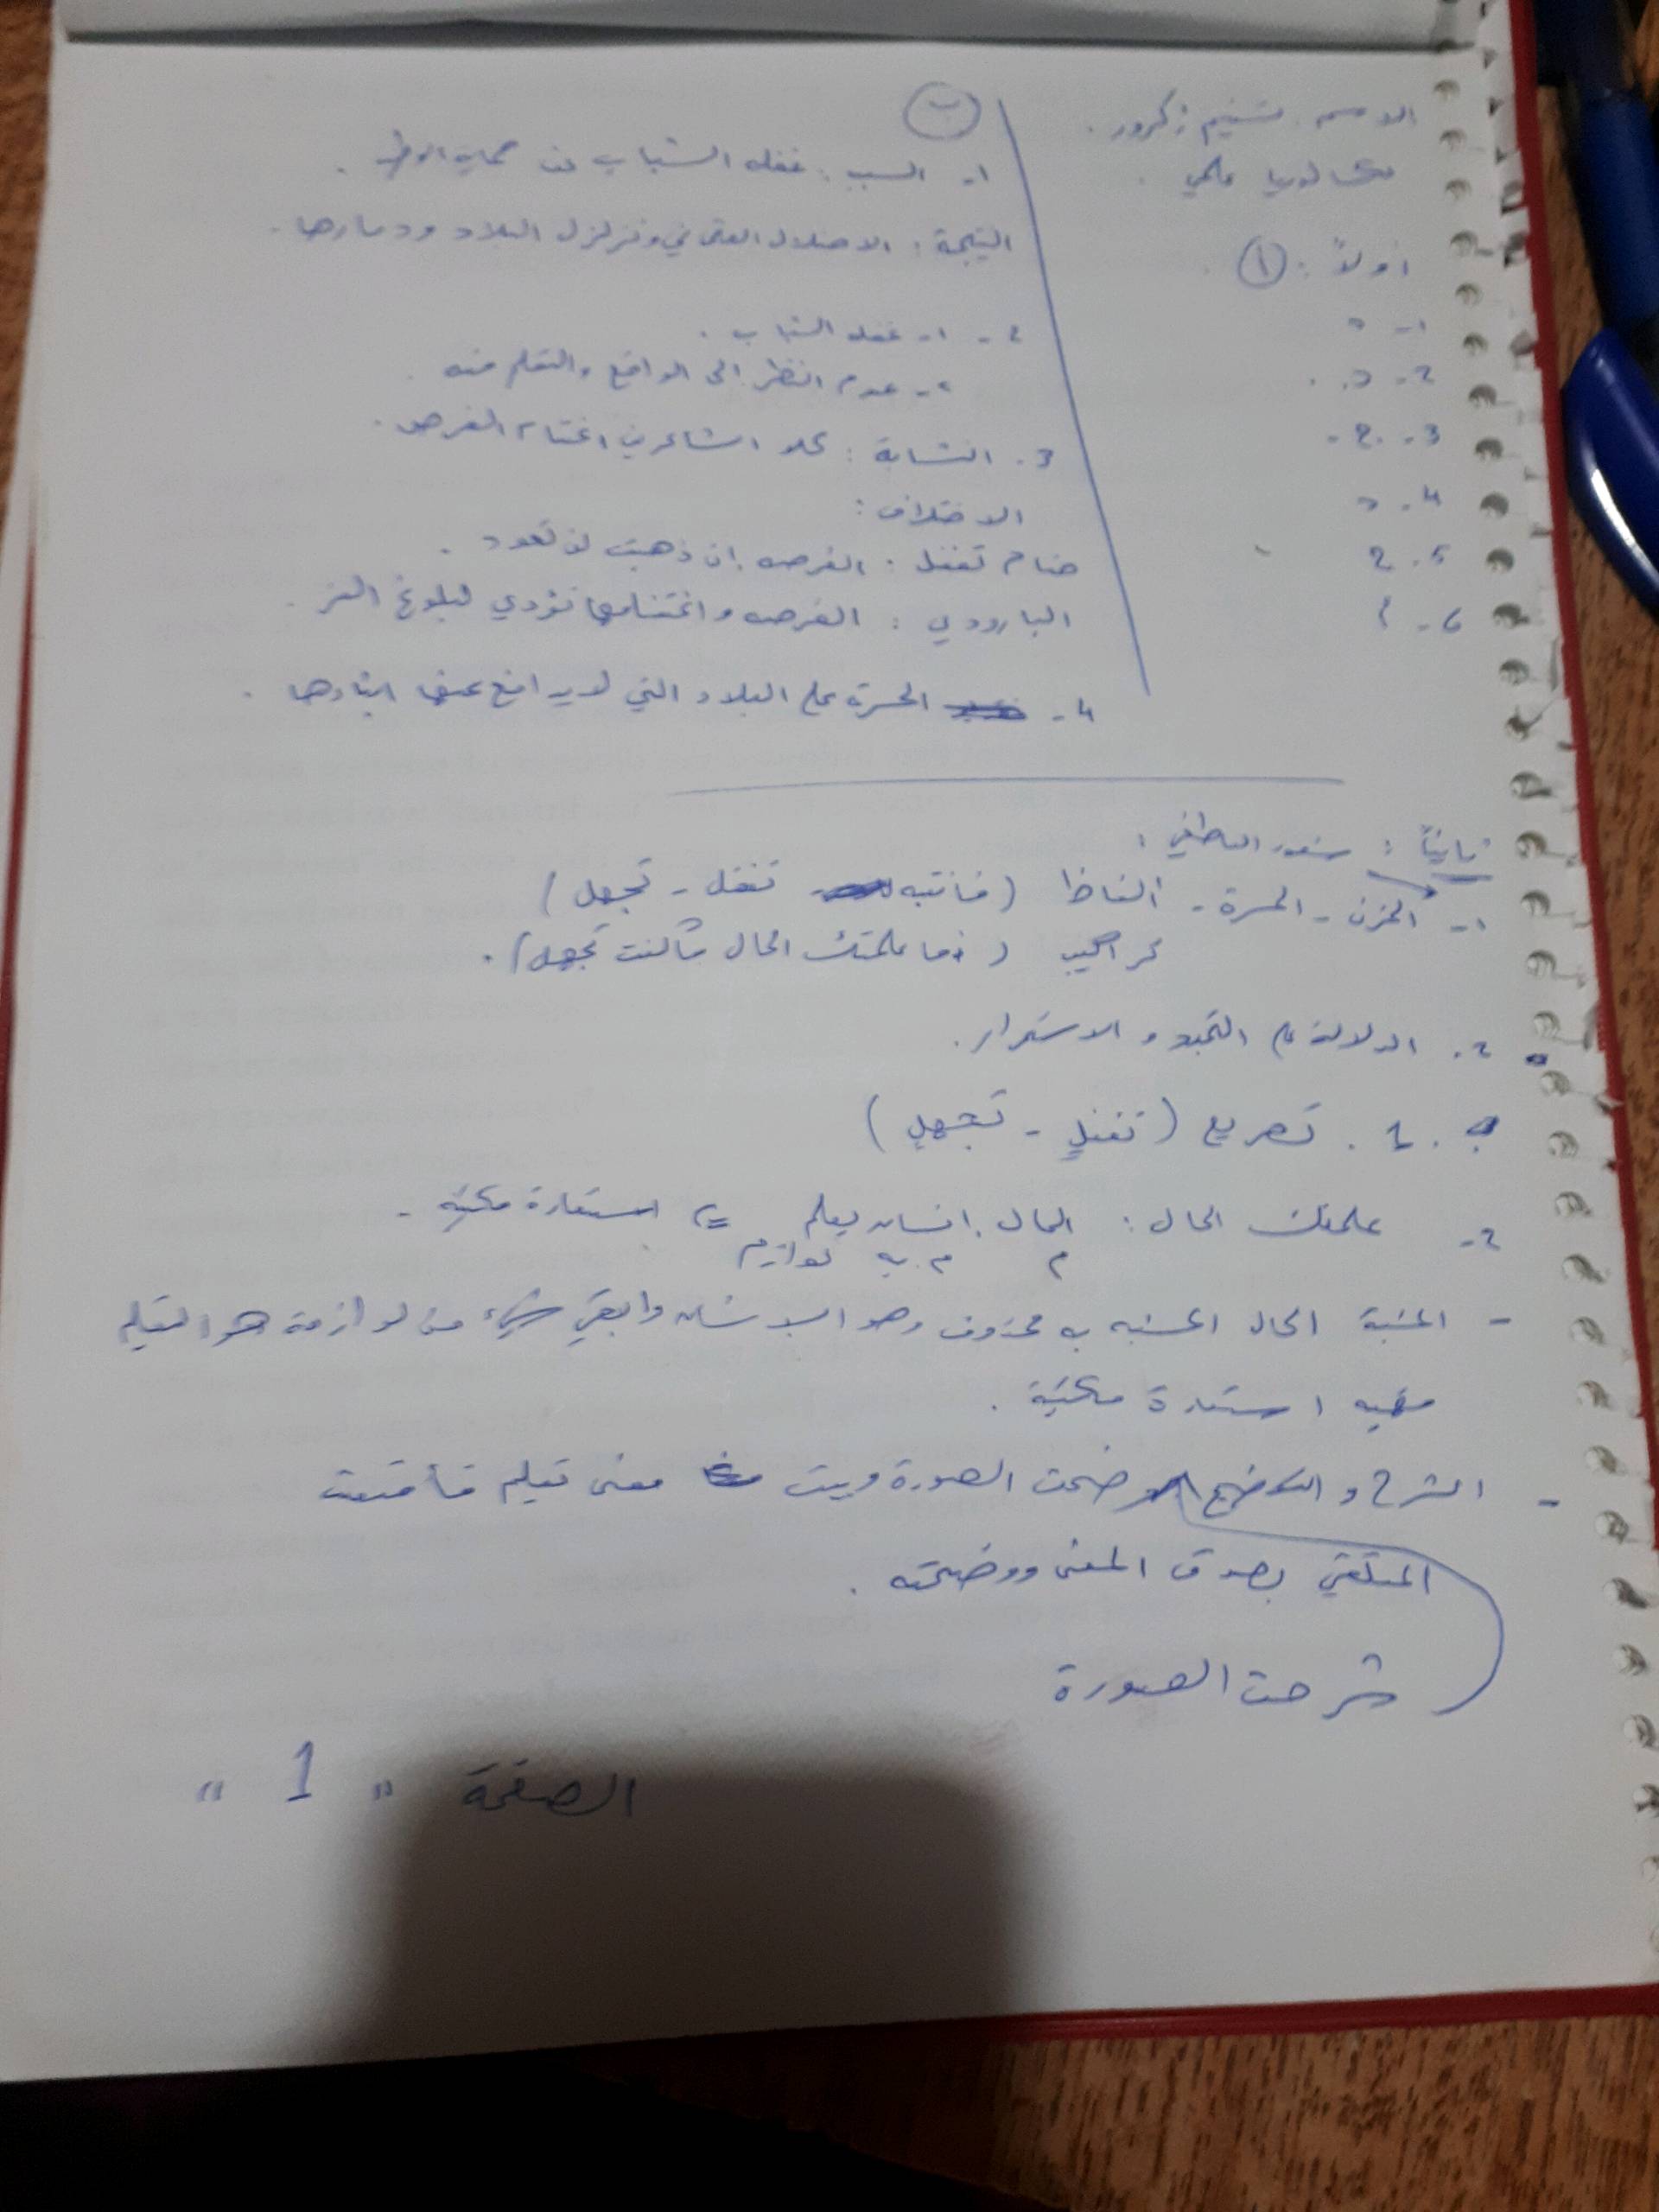 الاسم: تسنيم زكرور.
بكالوريا علمي.
أولاً: (أ)
1- د
2- د.
3- 2.
4- د
5. 2
6- أ
(ب)
1- السبب: غفله الشباب عن حماية الوطن.
النتيجة: الاحتلال العثماني وتزلزل البلاد ودمارها.
2- 1- غفله الشباب.
2- عدم النظر الى الواقع والتعلم منه.
3. التشابة: كلا الشاعرين اغتنام الفرص.
الاختلاف:
تغفل: الفرصه إن ذهبت لن تعود.
البارودي: الفرصه واغتنامها تؤدي لبلوغ العز.
4- الحسرة على البلاد التي لايدافع عنها ابناءها.
ثانياً: شعور العاطفي:
1- الحزن - الحسرة - الفاظ (فانتبه تغفل - تجهل)
تراكيب (فما علمتك الحال ماكنت تجهل).
2. الدلالة على التجدد والاستمرار.
ب. 1. تصريع (تغفل - تجهل)
2- علمتك الحال: الحال إنسان يعلم => استعارة مكنيه.
م م.به لوازم
- المشبة الحال المشبه به محذوف وهو الانسان وابقى شيء من لوازمة هو التعليم
ففيه استعارة مكنية.
- الشرح والتوضيح وضحت الصورة وبينت معنى تعليم فأقنعت
المتلقي بصدق المعنى ووضحته.
شرحت الصورة
الصفحة " 1 "